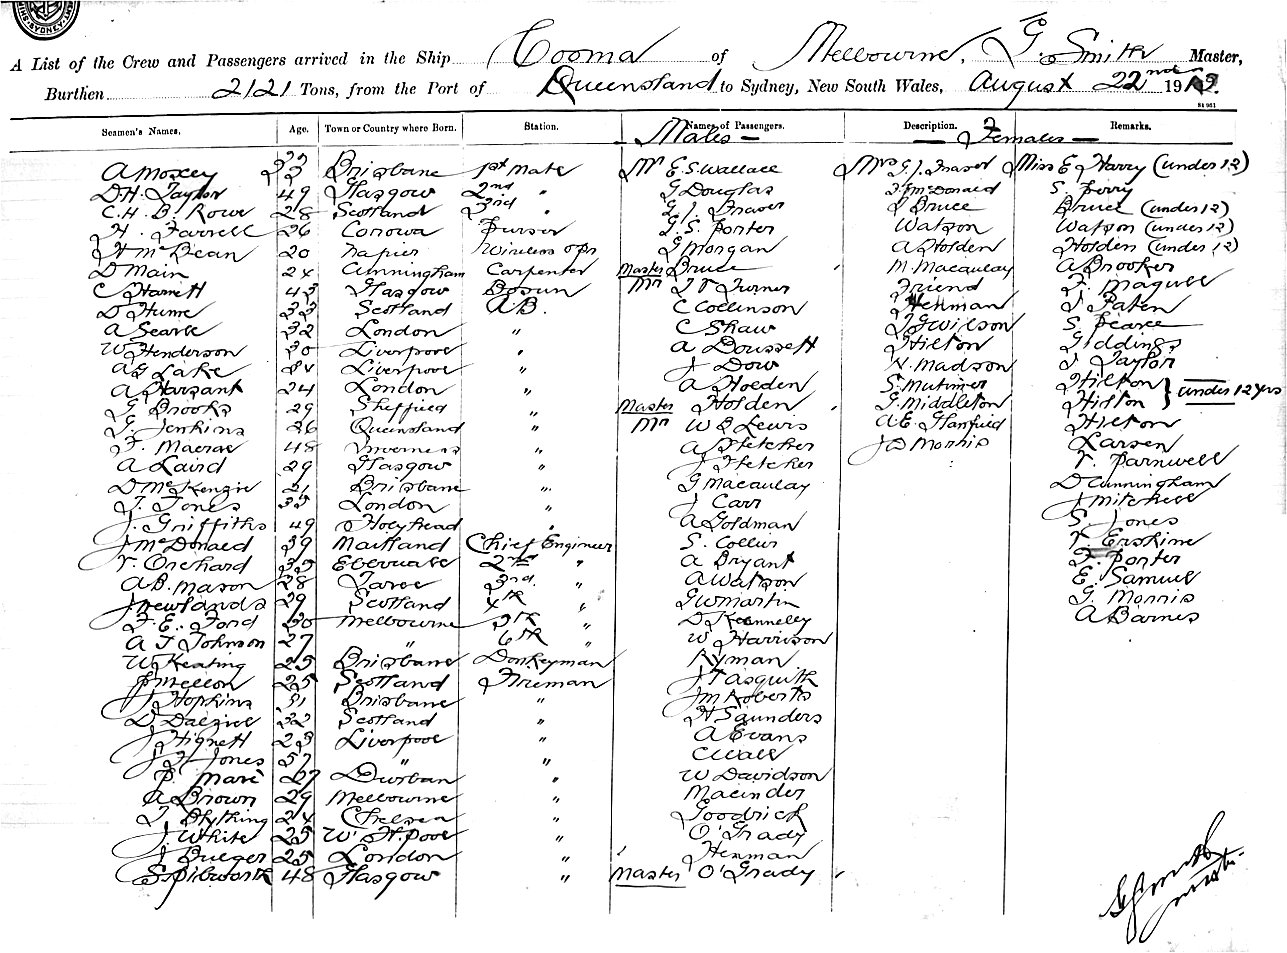 SYDNEY
A List of the Crew and Passengers arrived in the Ship Cooma of Melbourne, G. Smith Master,
Burthen 2121 Tons, from the Port of Queensland to Sydney, New South Wales, August 22nd 19
St 961
Seamen's Names, Age. Town or Country where Born. Station. Names of Passengers. Description. Remarks.
Males — Females —
A Moxey 33 Brisbane 1st Mate Mr E. S. Wallace Mrs G. J. Fraser Miss E Harry (under 12)
D. H. Taylor 49 Glasgow 2nd " G Douglas J. McDonald S. Perry
C. H. B. Rowe 28 Scotland 3rd " G. J. Fraser Bruce Bruce (under 12)
H. Farrell 26 Corowa Purser G. S. Porter Watson Watson (under 12)
H McBean 20 Napier Wireless opr G Morgan A Holden Holden (under 12)
D Main 24 Cunningham Carpenter Master Bruce ' M. Macaulay A Brooker
C Harrett 43 Glasgow Bosun Mr J T Turner Friend F. Magull
D Hume 33 Scotland A.B. C Collinson Henman J. Paten
A Searle 32 London " C Shaw J G Wilson S. Pearce
W Henderson 30 Liverpool " A Doussett Hilton Giddings
A G Lake Liverpool " J Dow N. Madson J Taylor
A Harsant 24 London " A Holden S. Mutimer Hilton } under 12 yrs
G Brooks 29 Sheffield " Master Holden ' G. Middleton Hilton
G. Jenkins 26 Queensland " Mr W E Lewis A E Glanfield Hilton
F. Macrae 48 Inverness " A Fletcher J D Morris Larsen
A Laird 29 Glasgow " J Fletcher Parnwell
D McKenzie 21 Brisbane " G Macaulay D Cunningham
T. Jones 35 London " J Carr J Mitchell
J. Griffiths 49 Holyhead " A Goldman S. Jones
J McDonald 39 Maitland Chief Engineer S. Collier Erskine
Orchard 35 2nd " A Bryant F. Porter
A B. Mason 28 Taree 3rd " A Watson E. Samuel
J Newlands 29 Scotland 4th " G W Martin G. Morris
F. E. Ford 30 Melbourne 5th " D Kennelly A Barnes
A T Johnson 27 " 6th " W Harrison
W Keating 25 Brisbane Donkeyman Ryman
J Mellon 25 Scotland Fireman J Pasquith
J Hopkins 31 Brisbane " J M Roberts
D Dalziel 32 Scotland " H Saunders
J Hignett 23 Liverpool " A Evans
J H Jones 57 " " C Wall
P. Mare 27 Durban " W Davidson
A Brown 29 Melbourne " Macinder
T Blything 24 Chelsea " Goodrick
J. White 25 W. H. Pool " O'Grady
J Bueger 25 London " Henman
S Pilsworth 48 Glasgow " Master O'Grady '
G Smith
Master